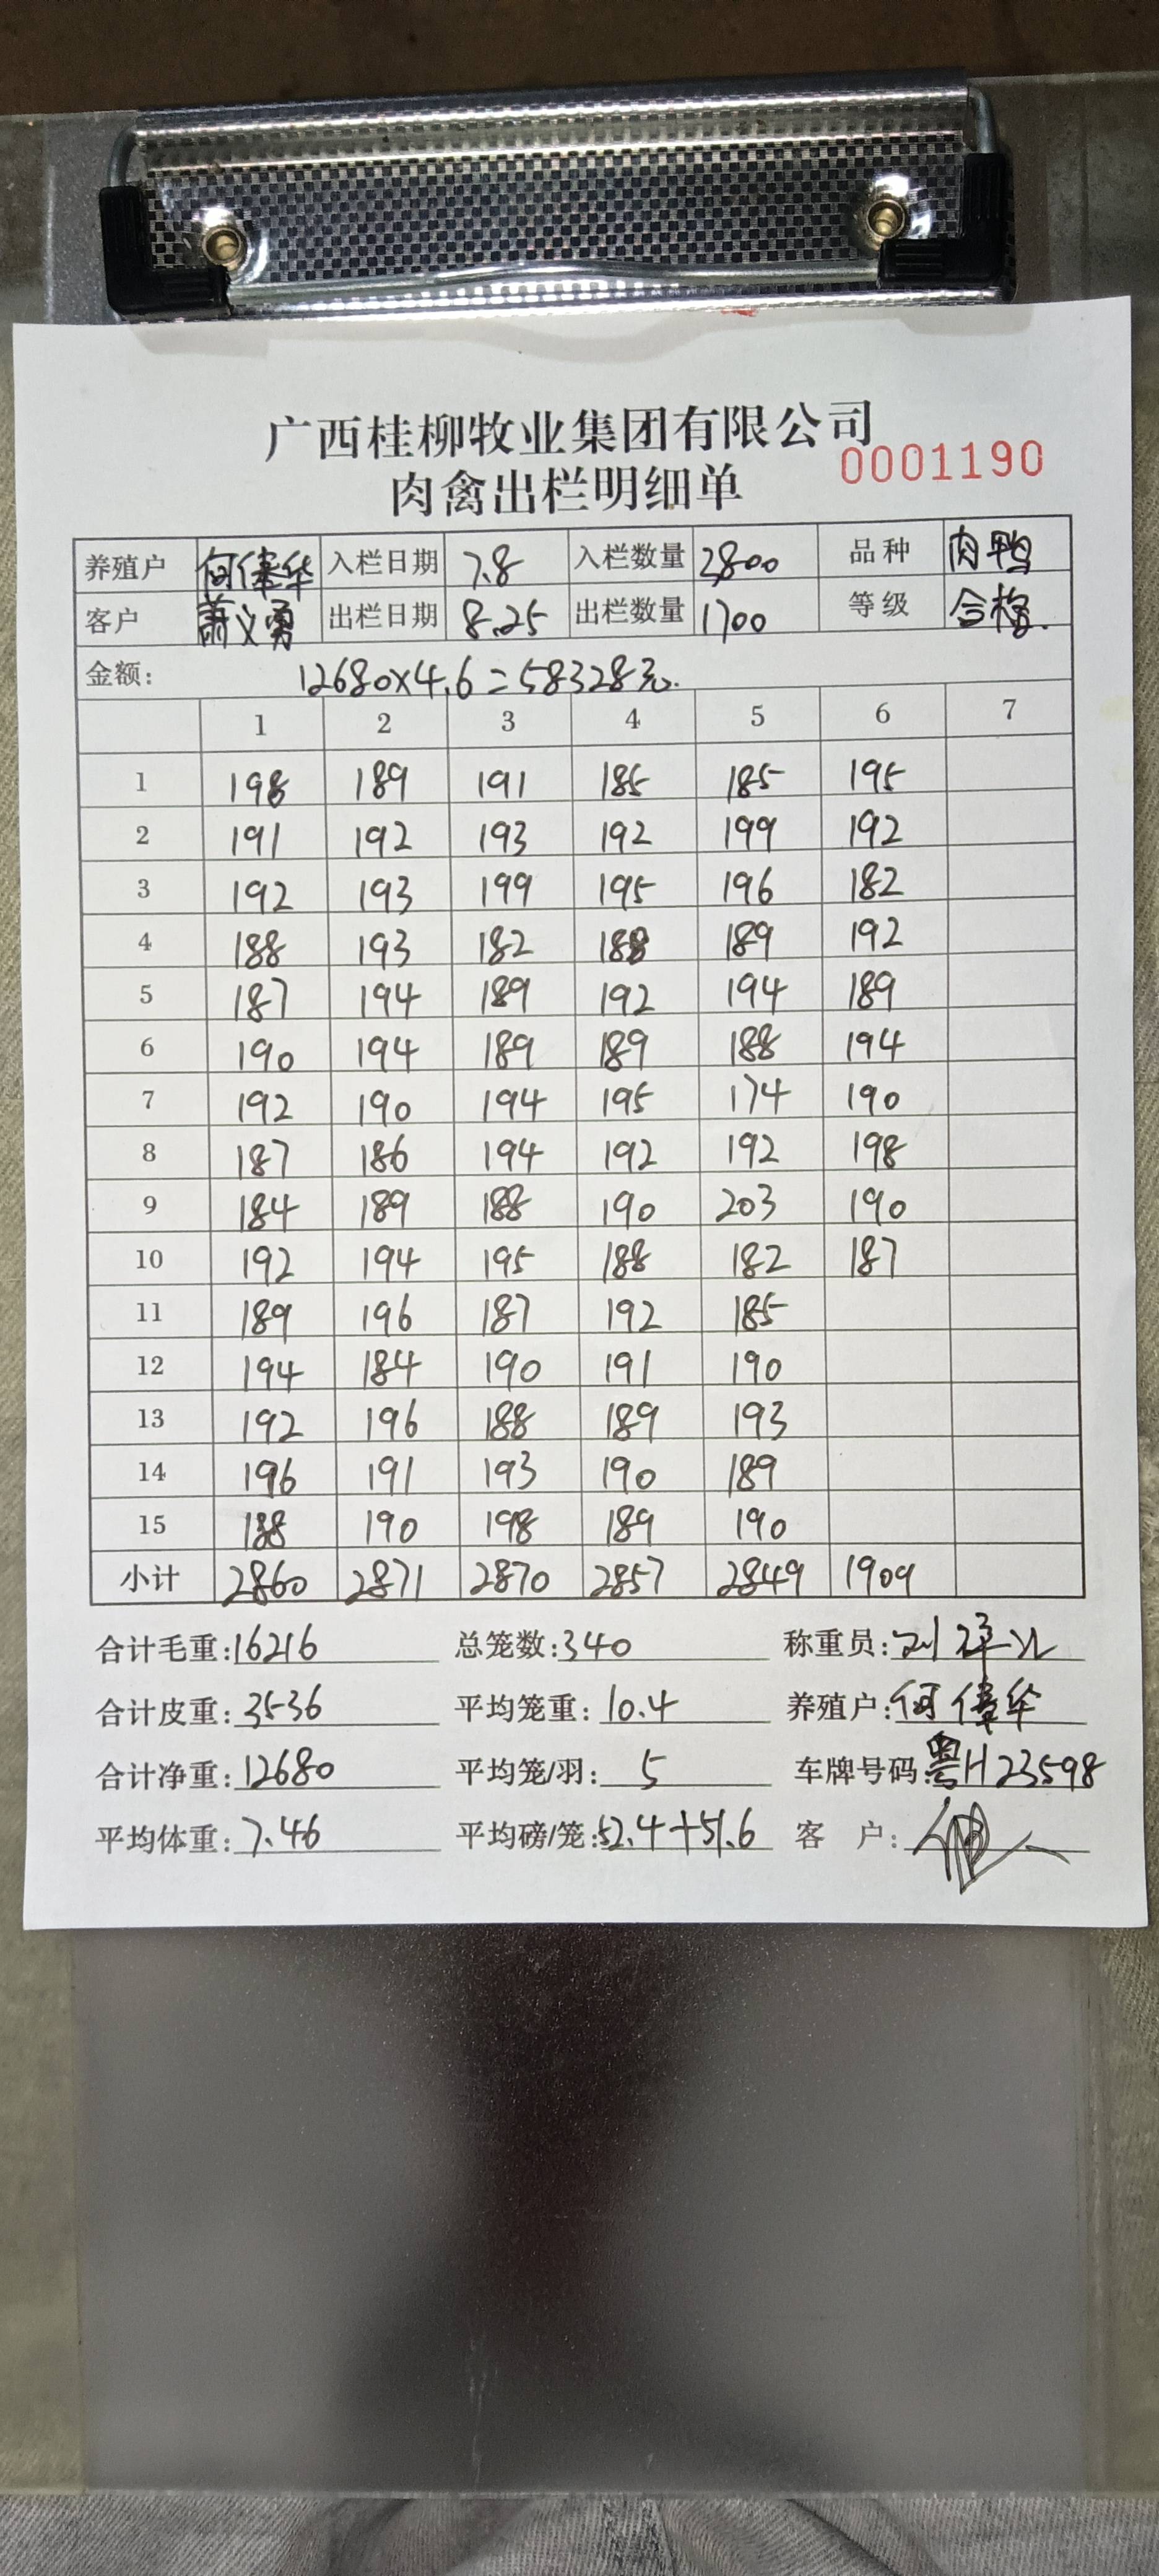 广西桂柳牧业集团有限公司
肉禽出栏明细单 0001190
养殖户 何伟华 入栏日期 7.8 入栏数量 2800 品种 肉鸭
客户 萧义勇 出栏日期 8.25 出栏数量 1700 等级 合格.
金额: 12680×4.6=58328元.
1 2 3 4 5 6 7
1 198 189 191 185 185 195
2 191 192 193 192 199 192
3 192 193 199 195 196 182
4 188 193 182 188 189 192
5 187 194 189 192 194 189
6 190 194 189 189 188 194
7 192 190 194 195 174 190
8 187 186 194 192 192 198
9 184 189 188 190 203 190
10 192 194 195 188 182 187
11 189 196 187 192 185
12 194 184 190 191 190
13 192 196 188 189 193
14 196 191 193 190 189
15 188 190 198 189 190
小计 2860 2871 2870 2857 2849 1909
合计毛重:16216 总笼数:340 称重员:刘
合计皮重:3536 平均笼重:10.4 养殖户:何伟华
合计净重:12680 平均笼/羽:5 车牌号码:粤H23598
平均体重:7.46 平均磅/笼:52.4+51.6 客 户: